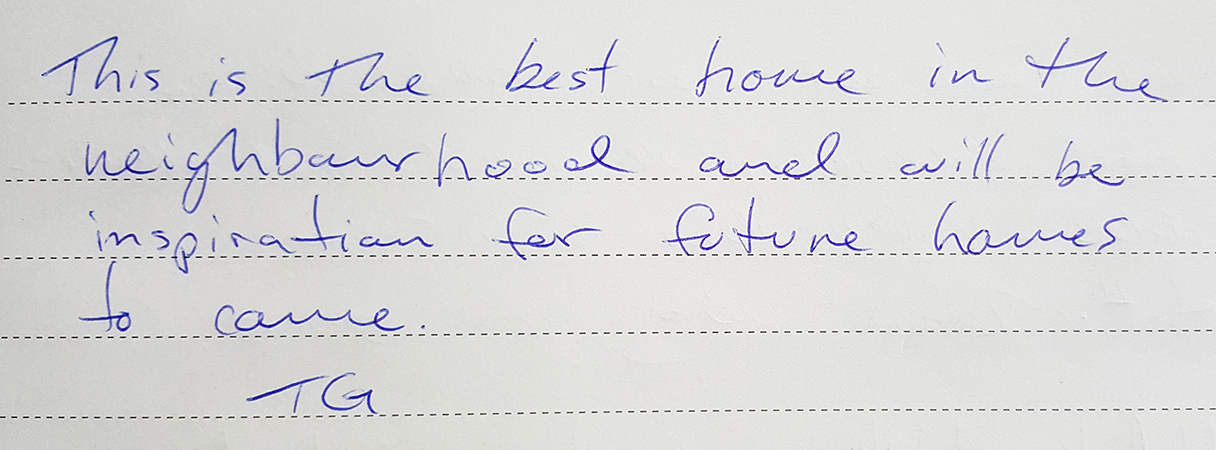 This is the best home in the
neighbourhood and will be
inspiration for future homes
to come.
TG